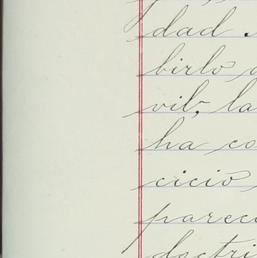 dad.
birlo
vil; la
ha co
cicio
parec
doctri